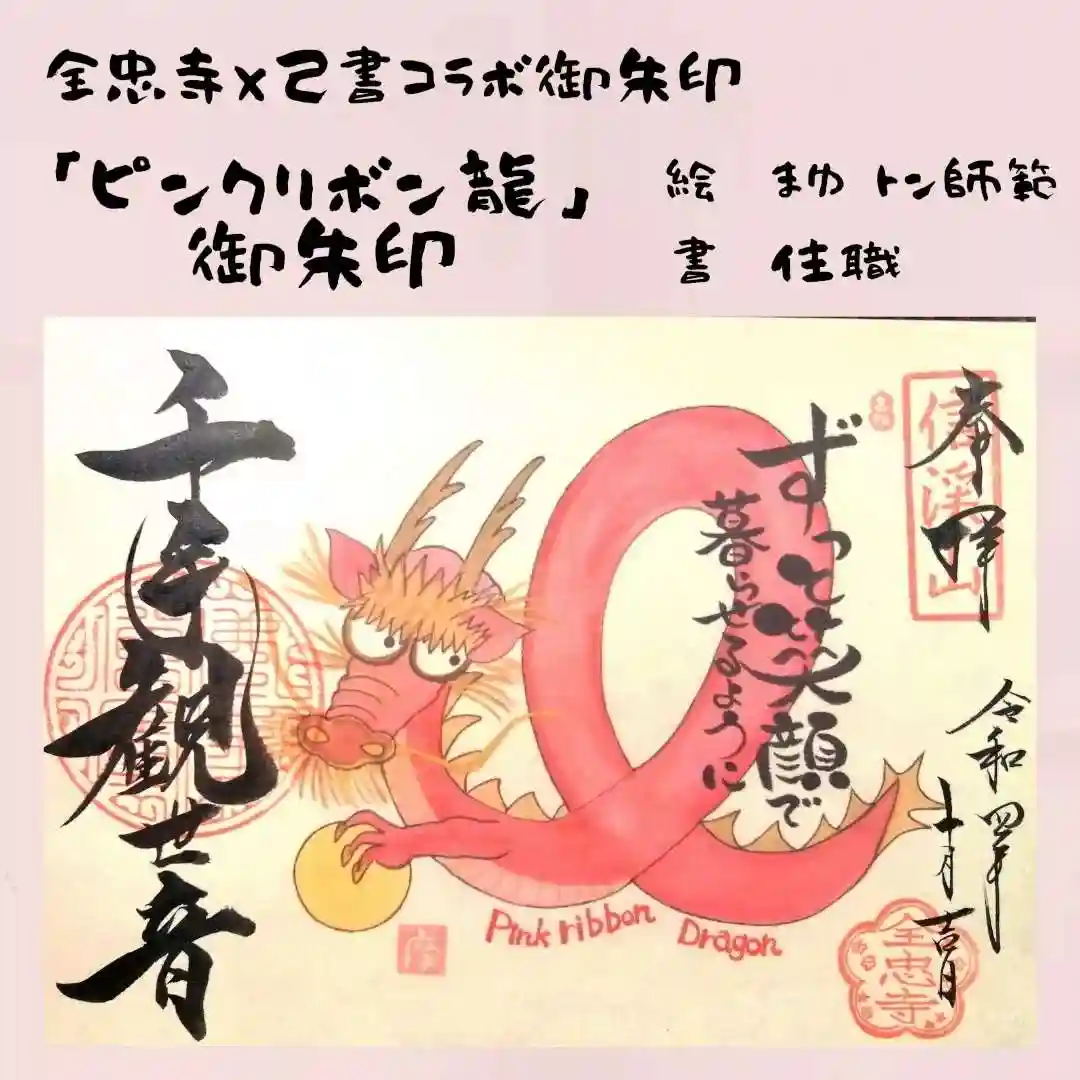 全忠寺×己書コラボ御朱印
「ピンクリボン龍」
御朱印
絵 まゆトン師範
書 住職
奉拝
信渓山
令和四年
十月吉日
全忠寺
ずっと笑顔で
暮らせるように
千手観世音
Pink ribbon Dragon